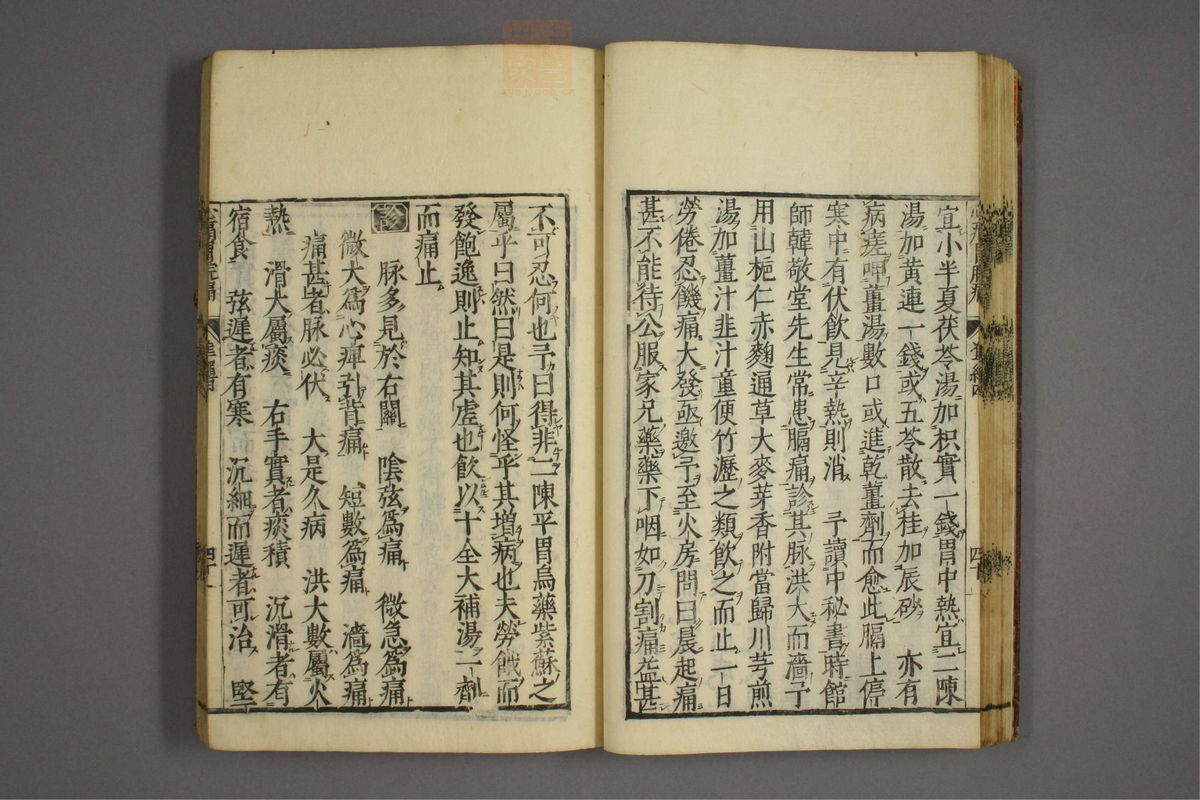 宜小半夏茯苓湯加枳實一錢胃中熱宜二陳
湯加黄連一錢或五苓散去桂加辰砂　亦有
病瘥呷薑湯數口或進乾薑劑而愈此膈上停
寒中有伏飲見辛熱則消　予讀中秘書時館
師韓敬堂先生常患膈痛診其脉洪大而濇予
用山梔仁赤麯通草大麥芽香附當歸川芎煎
湯加薑汁韭汁童便竹瀝之類飲之而止一日
勞倦忍饑痛大發亟邀予至火房問曰晨起痛
甚不能待公服家兄藥藥下咽如刀割痛益甚
不可忍何也予曰得非二陳平胃烏藥紫蘇之
屬乎曰然曰是則何怪乎其増病也夫勞餓而
發飽逸則止知其虚也飲以十全大補湯一劑
而痛止
診　脉多見於右關　陰弦爲痛　微急爲痛
微大爲心痺引背痛　短數爲痛　濇爲痛
痛甚者脉必伏　大是久病　洪大數屬火
熱　滑大屬痰　右手實者痰積　沉滑者有
宿食　弦遲者有寒　沉細而遲者可治　堅